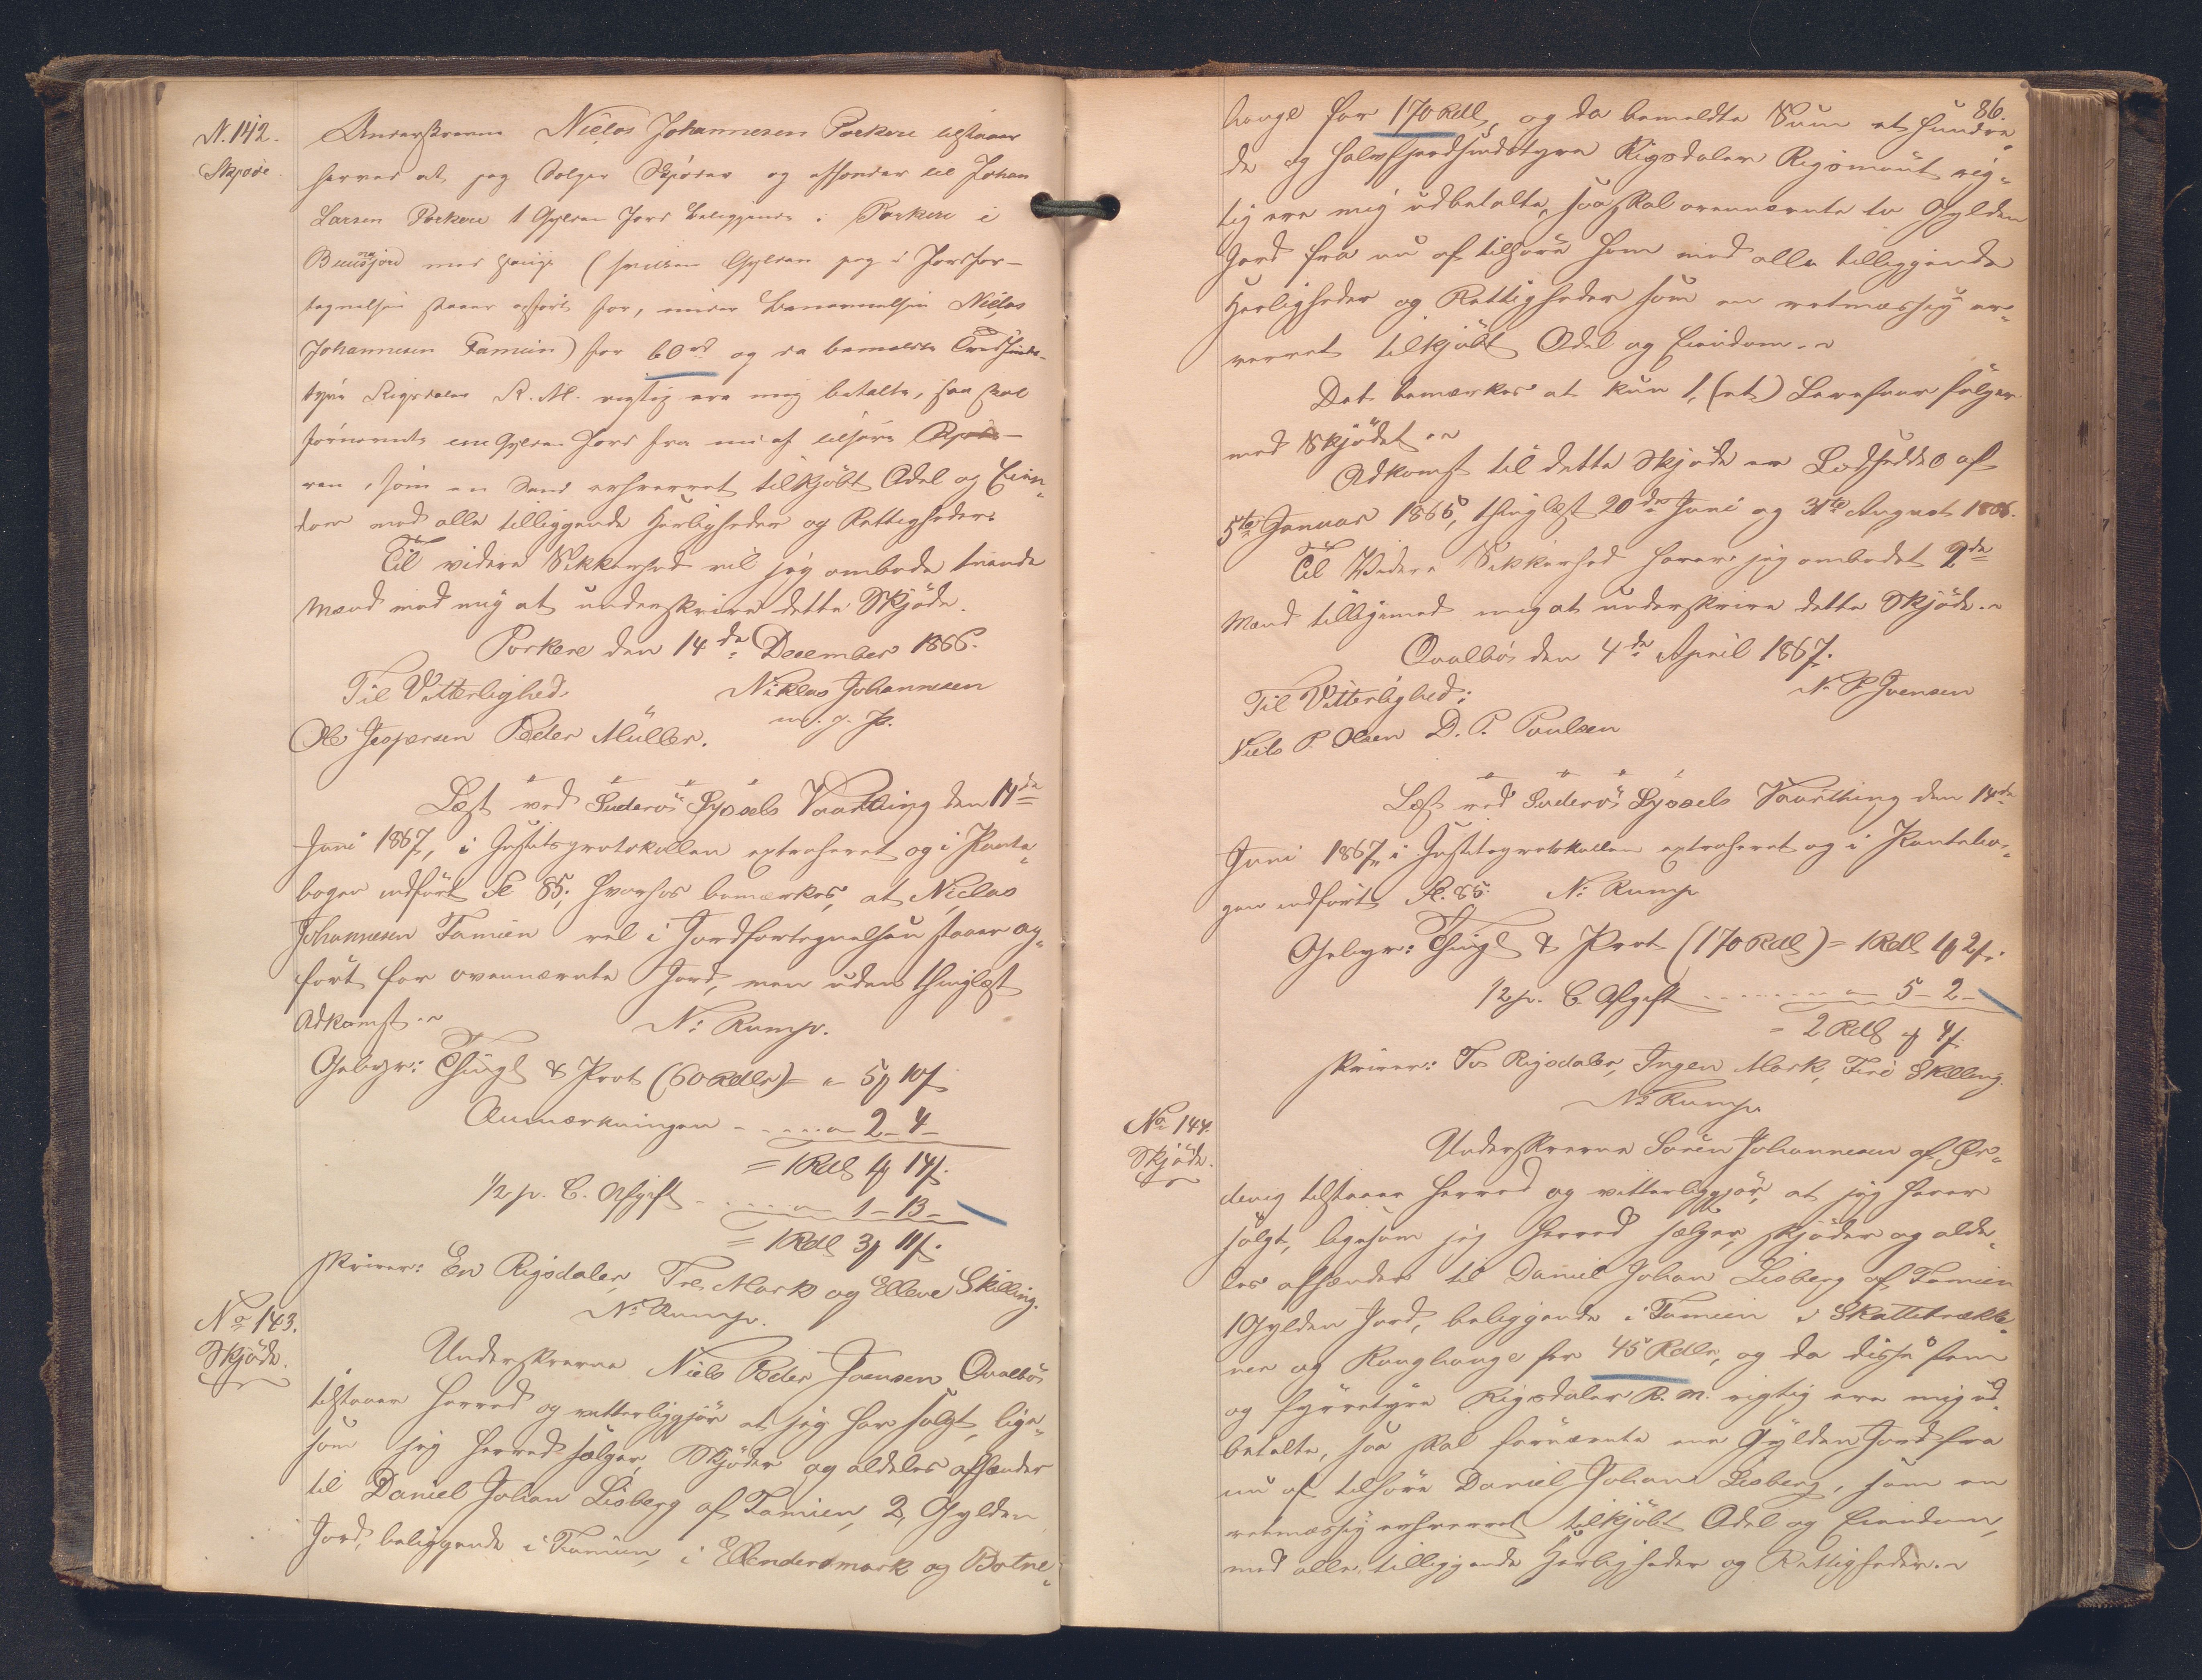 N. 142.
Skjøde.
Underskrevne Niclas Johannesen Porkere tilstaaer
herved at jeg Sælger Skjøder og afhænder til Johan
Larsen Porkere 1 Gylden Jord beliggende i Porkere i
med Hauge (hvilken Gylden jeg i Jordfor-
tegnelsen staaer opført for, under Benævnelsen Niclas
Johannesen Famien) for 60 rd og da bemeldte Tredsinds-
tyve Rigsdaler R. M. rigtig ere mig betalte, saa skal
fornævnte een Gylden Jord fra nu af tilhøre Kjøbe-
ren, som en Sand erhvervet tilkjøbt Odel og Eien„
dom med alle tilliggende Herligheder og Rettigheder.
Til videre Sikkerhed vil jeg ombede tvende
Mænd med mig at underskrive dette Skjöde.
Porkere den 14de December 1866.
Til Vitterlighed. Niklas Johannesen
Ole Jespersen Peder Müller. m. f. P.
Læst ved Suderö Syssels Vaarthing den 14de
Juni 1867, i Justitsprotokollen extraheret og i Pante„
bogen indført Fl 85; hvorhos bemærkes, at Niclas
Johannesen Famien vel i Jordfortegnelsen staaer op„
fört for ovennævnte Jord, men uden thinglæst
Adkomst.
N: Rump.
Gebyr: Thingl & Prot (60 Rdlr) = „ 5 ϸ 10 ſ
Anmærkningen - - - - - „ 2 - 4 -
= 1 Rdl 1 ϸ 14 ſ.
1/2 p. C. Afgift - - - - - „ 1 - 13 -
= 1 Rdl 3 ϸ 11 ſ.
skriver: En Rigsdaler, Tre Mark og Elleve Skilling.
N: Rump.
No 143.
Skjöde.
Underskrevne Niels Peder Joensen Qvalbö
tilstaaer herved og vitterliggjör at jeg har solgt, lige„
som jeg herved sælger, Skjöder og aldeles afhænder
til Daniel Johan Lisberg af Famien, 2, Gylden
Jord, beliggende i Famien, i Ellendersmark og Botne„
86.
hauge for 170 Rdl, og da bemeldte Sum et hundre„
de og halvfjerdsindstyve Rigsdaler Rigsmönt rig„
tig ere mig udbetalte, saa skal ovennævnte to Gylden
Jord fra nu af tilhøre ham med alle tilliggende
Herligheder og Rettigheder som en retmæssig er„
vervet tilkjöbt Odel og Eiendom.
Det bemærkes at kun 1, (et) Lævefaar fölger
med Skjödet.
Adkomst til dette Skjøde er Lodseddel af
5te Januar 1865, thinglæst 20de Juni og 31te August 1866.
Til Videre Sikkerhed haver jeg ombedet 2de
Mænd tilligemed mig at underskrive dette Skjöde.
Qvalbö den 4de April 1867.
Til Vitterlighed: N. P. Joensen
Niels P. Olsen D. P. Poulsen
Læst ved Suderö Syssels Vaarthing den 14de
Juni 1867, i Justitsprotokollen extraheret og i Pantebo„
gen indfört Fl. 85. N: Rump
Gebyr: Thingl & Prot (170 Rdl) = 1 Rdl 1 ϸ 2 ſ.
1/2 p. C Afgift - - - - - - - „ 5 - 2 -
= 2 Rdl „ ϸ 4 ſ.
skriver: To Rigsdaler, Ingen Mark, Fire Skilling.
N: Rump
No 144.
Skjöde.
Underskrevne Sören Johannesen af Ör„
devig tilstaaer herved og vitterliggjör, at jeg haver
solgt, ligesom jeg herved sælger, skjöder og alde„
les afhænder til Daniel Johan Lisberg af Famien
1 Gylden Jord, beliggende i Famien i Skattetrække„
ner og Ranghauge for 45 Rdlr, og da disse fem
og fyrretyve Rigsdaler R. M. rigtig ere mig ud„
betalte, saa skal fornævnte een Gylden Jord fra
nu af tilhöre Daniel Johan Lisberg, som en
retmæssig erhvervet tilkjöbt Odel og Eiendom,
med alle tilliggende Herligheder og Rettigheder.